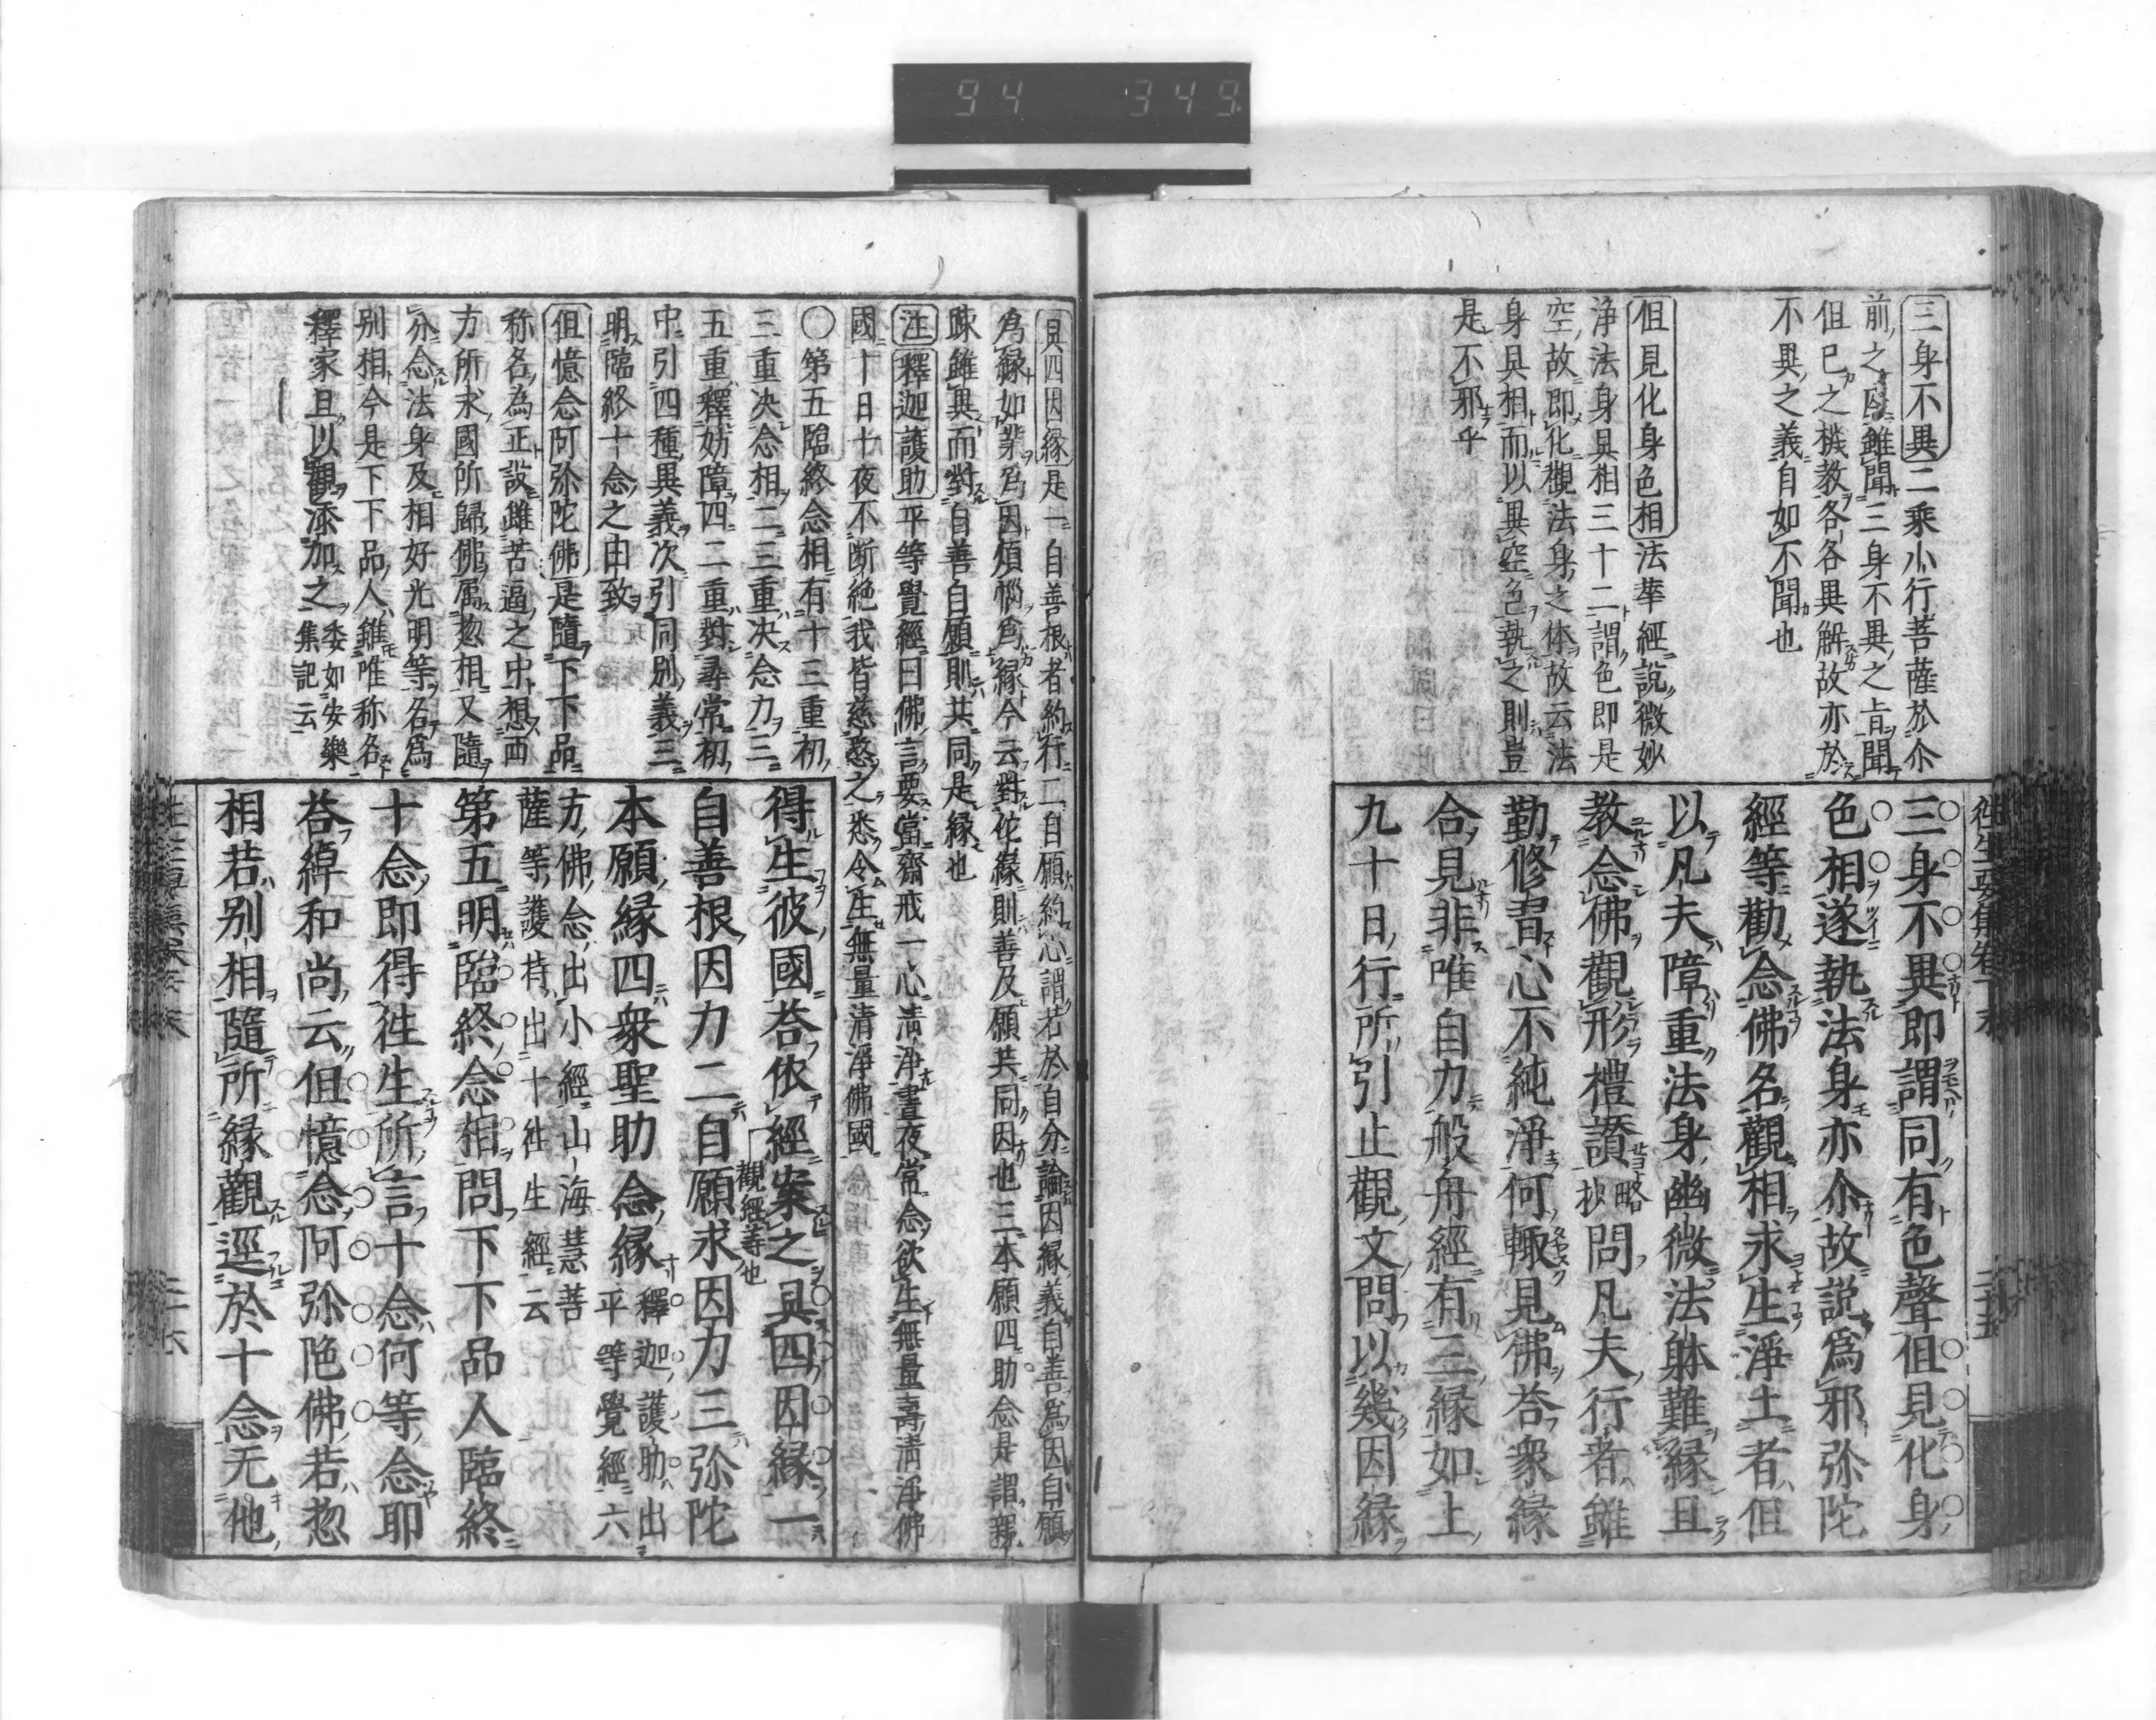 94 349
三身不異二乘小行菩薩於尒
前之雖聞三身不異之旨聞
但已之機教各各異解故亦於
不異之義自如不聞也
但見化身色相法華經說微妙
淨法身具相三十二謂色即是
空故即化觀法身之体故云法
身具相而以異空色執之則豈
是不邪乎
往生要集卷下末
二十五
三身不異即謂同有色聲但見化身
色相遂執法身亦尒故説爲邪弥陀
經等勸念佛名觀相求生淨土者但
以凡夫障重法身幽微法躰難緣且
教念佛觀形禮讚略抄問凡夫行者雖
勤修習心不純淨何輙見佛荅衆緣
合見非唯自力般舟經有三緣如上
九十日行所引止觀文問以幾因緣
具四因緣是一自善根者約行二自願約心謂若於自分論因緣義自善爲因自願
爲緣如業爲因煩惱爲緣今云對佗緣則善及願共同因也三本願四助念是謂
踈雖異而對自善自願則共同是緣也
注釋迦護助平等覺經曰佛言要當齋戒一心淸淨晝夜常念欲生無量壽淸淨佛
國十日十夜不断絶我皆慈愍之悉令生無量清淨佛國
〇第五臨終念相有十三重初
三重决念相二三重决念力三
五重釋妨障四二重對尋常初
中引四種異義次引同別義三
明臨終十念之由致
但憶念阿弥陀佛是隨下下品
称名為正設雖苦逼之中想西
方所求國所歸佛属惣相又隨
分念法身及相好光明等名爲
別相今是下下品人雖唯称名
釋家且以觀添加之委如安樂集記云
得生彼國荅依經案之具四因緣一
自善根因力二自願求因力三弥陀
觀經等也
本願緣四衆聖助念緣釋迦護助出平等覺經六
方佛念出小經山海慧菩
薩等護持出十徃生經云
第五明臨終念相問下下品人臨終
十念即得徃生所言十念何等念耶
荅綽和尚云但憶念阿弥陁佛若惣
相若別相隨所緣觀逕於十念无他